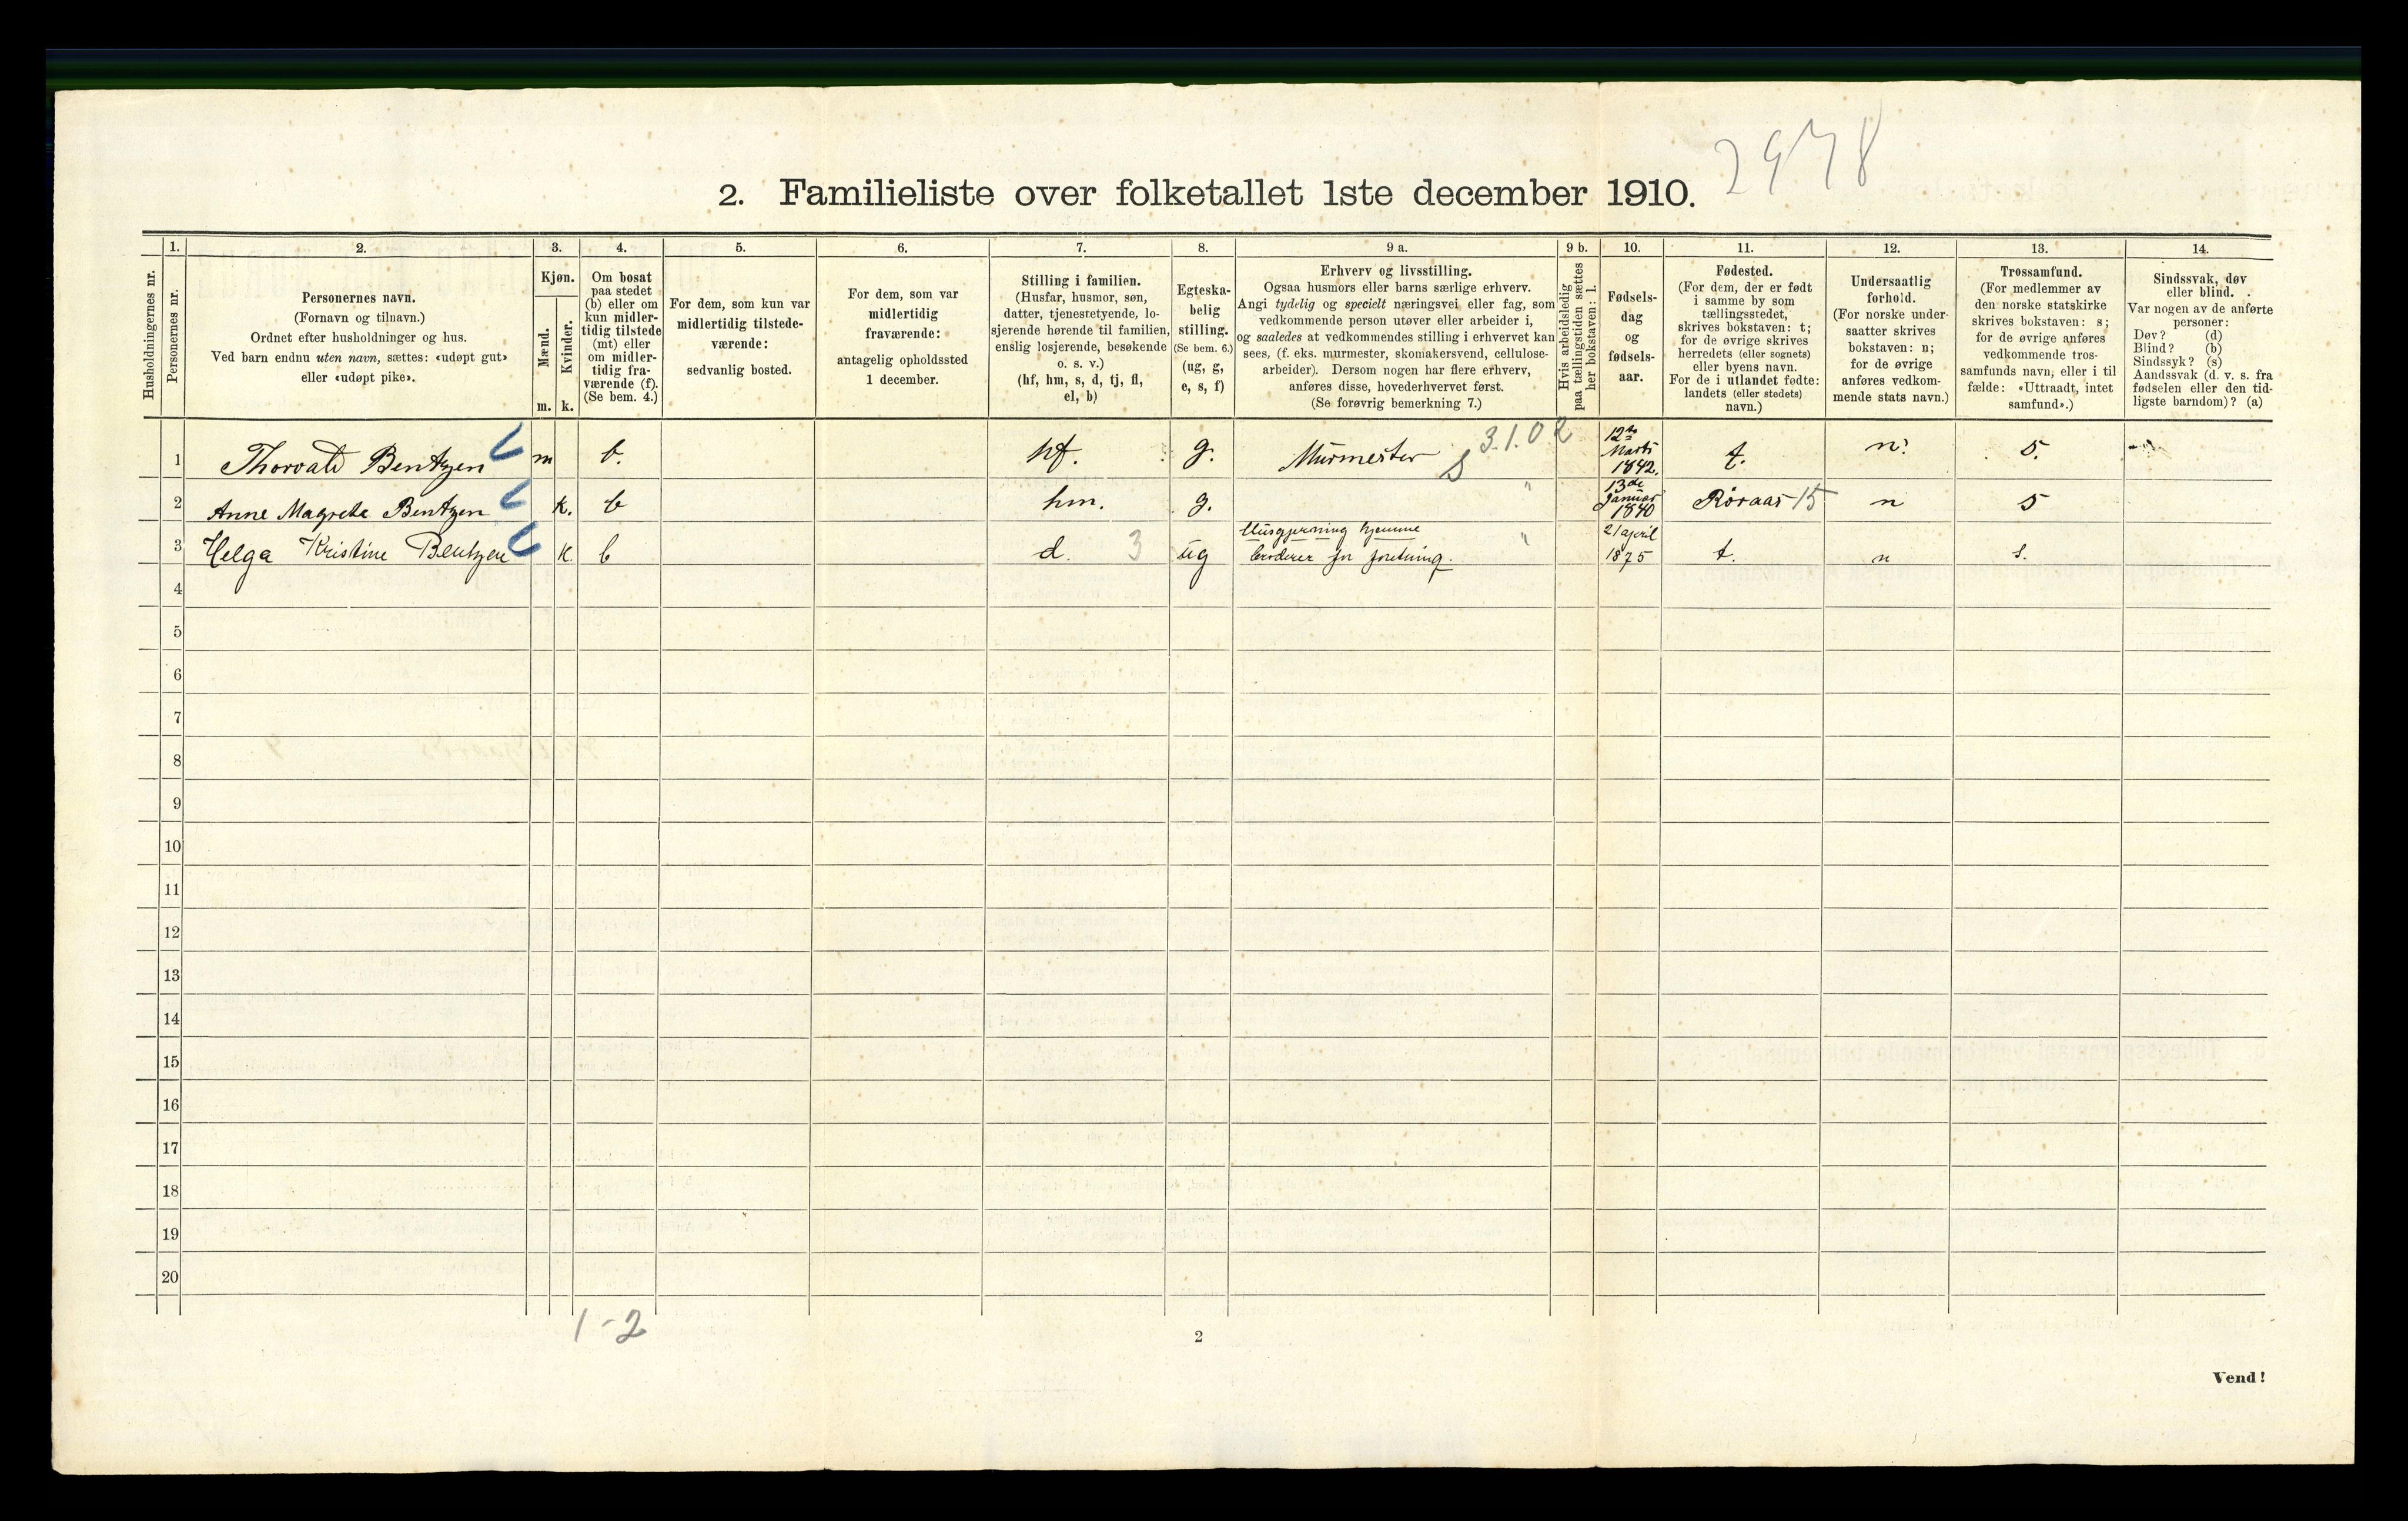 2978
2. Familieliste over folketallet 1ste december 1910.
Husholdningernes nr.
1.
Personernes nr.
2.
Personernes navn.
(Fornavn og tilnavn.)
Ordnet efter husholdninger og hus.
Ved barn endnu uten navn, sættes: «udøpt gut»
eller «udøpt pike».
3.
Kjøn.
Mænd.
Kvinder.
m. k.
4.
Om bosat
paa stedet
(b) eller om
kun midler-
tidig tilstede
(mt) eller
om midler-
tidig fra-
værende (f).
(Se bem. 4.)
5.
For dem, som kun var
midlertidig tilstede-
værende:
sedvanlig bosted.
6.
For dem, som var
midlertidig
fraværende:
antagelig opholdssted
1 december.
7.
Stilling i familien.
(Husfar, husmor, søn,
datter, tjenestetyende, lo-
sjerende hørende til familien,
enslig losjerende, besøkende
o. s. v.)
(hf, hm, s, d, tj, fl,
el, b)
8.
Egteska-
belig
stilling.
(Se bem. 6.)
(ug, g,
e, s, f)
9 a.
Erhverv og livsstilling.
Ogsaa husmors eller barns særlige erhverv.
Angi tydelig og specielt næringsvei eller fag, som
vedkommende person utøver eller arbeider i,
og saaledes at vedkommendes stilling i erhvervet kan
sees, (f. eks. murmester, skomakersvend, cellulose-
arbeider). Dersom nogen har flere erhverv,
anføres disse, hovederhvervet først.
(Se forøvrig bemerkning 7.)
9 b.
Hvis arbeidsledig
paa tællingstiden sættes
her bokstaven: l.
10.
Fødsels-
dag
og
fødsels-
aar.
11.
Fødested.
(For dem, der er født
i samme by som
tællingsstedet,
skrives bokstaven: t;
for de øvrige skrives
herredets (eller sognets)
eller byens navn.
For de i utlandet fødte:
landets (eller stedets)
navn.)
12.
Undersaatlig
forhold.
(For norske under-
saatter skrives
bokstaven: n;
for de øvrige
anføres vedkom-
mende stats navn.)
13.
Trossamfund.
(For medlemmer av
den norske statskirke
skrives bokstaven: s;
for de øvrige anføres
vedkommende tros-
samfunds navn, eller i til
fælde: «Uttraadt, intet
samfund».)
14.
Sindssvak, døv
eller blind.
Var nogen av de anførte
personer:
Døv? (d)
Blind? (b)
Sindssyk? (s)
Aandssvak (d. v. s. fra
fødselen eller den tid-
ligste barndom)? (a)
1 Thorvald Bentzen m b. hf. g. Murmester S 3.1.02 12te Marts 1842. t. n. s.
2 Anne Magrete Bentzen k. b hm. g. " 13de Januar 1840 Röraas 15 n s
3 Helga Kristine Bentzen k. b d. 3 ug Husgjerning hjemme " 21 april
broderer for forretning. 1875 t. n s.
4
5
6
7
8
9
10
11
12
13
14
15
16
17
18
19
20
1-2
2
Vend!